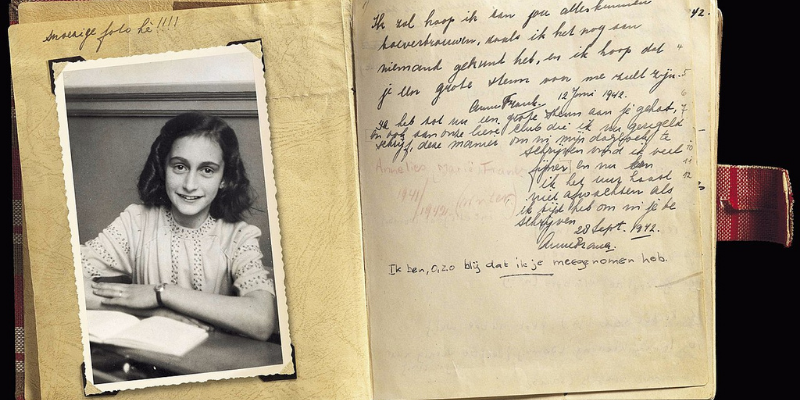 snoezige foto hè!!!!
42.
Ik zal hoop ik aan jou alles kunnen
toevertrouwen, zoals ik het nog aan
niemand gekunt heb, en ik hoop dat
je een grote steun voor me zult zijn.
Anne Frank. 12 Juni 1942.
Ik heb tot nu een grote steun aan je gehad,
en ook aan onze lieve club die ik nu geregeld
schrijf, deze manier om in mijn dagboek te
schrijven vind ik veel
fijner en nu kan
ik het uur haast
niet afwachten als
ik tijd heb om in je te
schrijven.
28 Sept. 1942.
Anne Frank.
Annelies Marie Frank
Ik ben, O, zo blij dat ik je meegenomen heb.